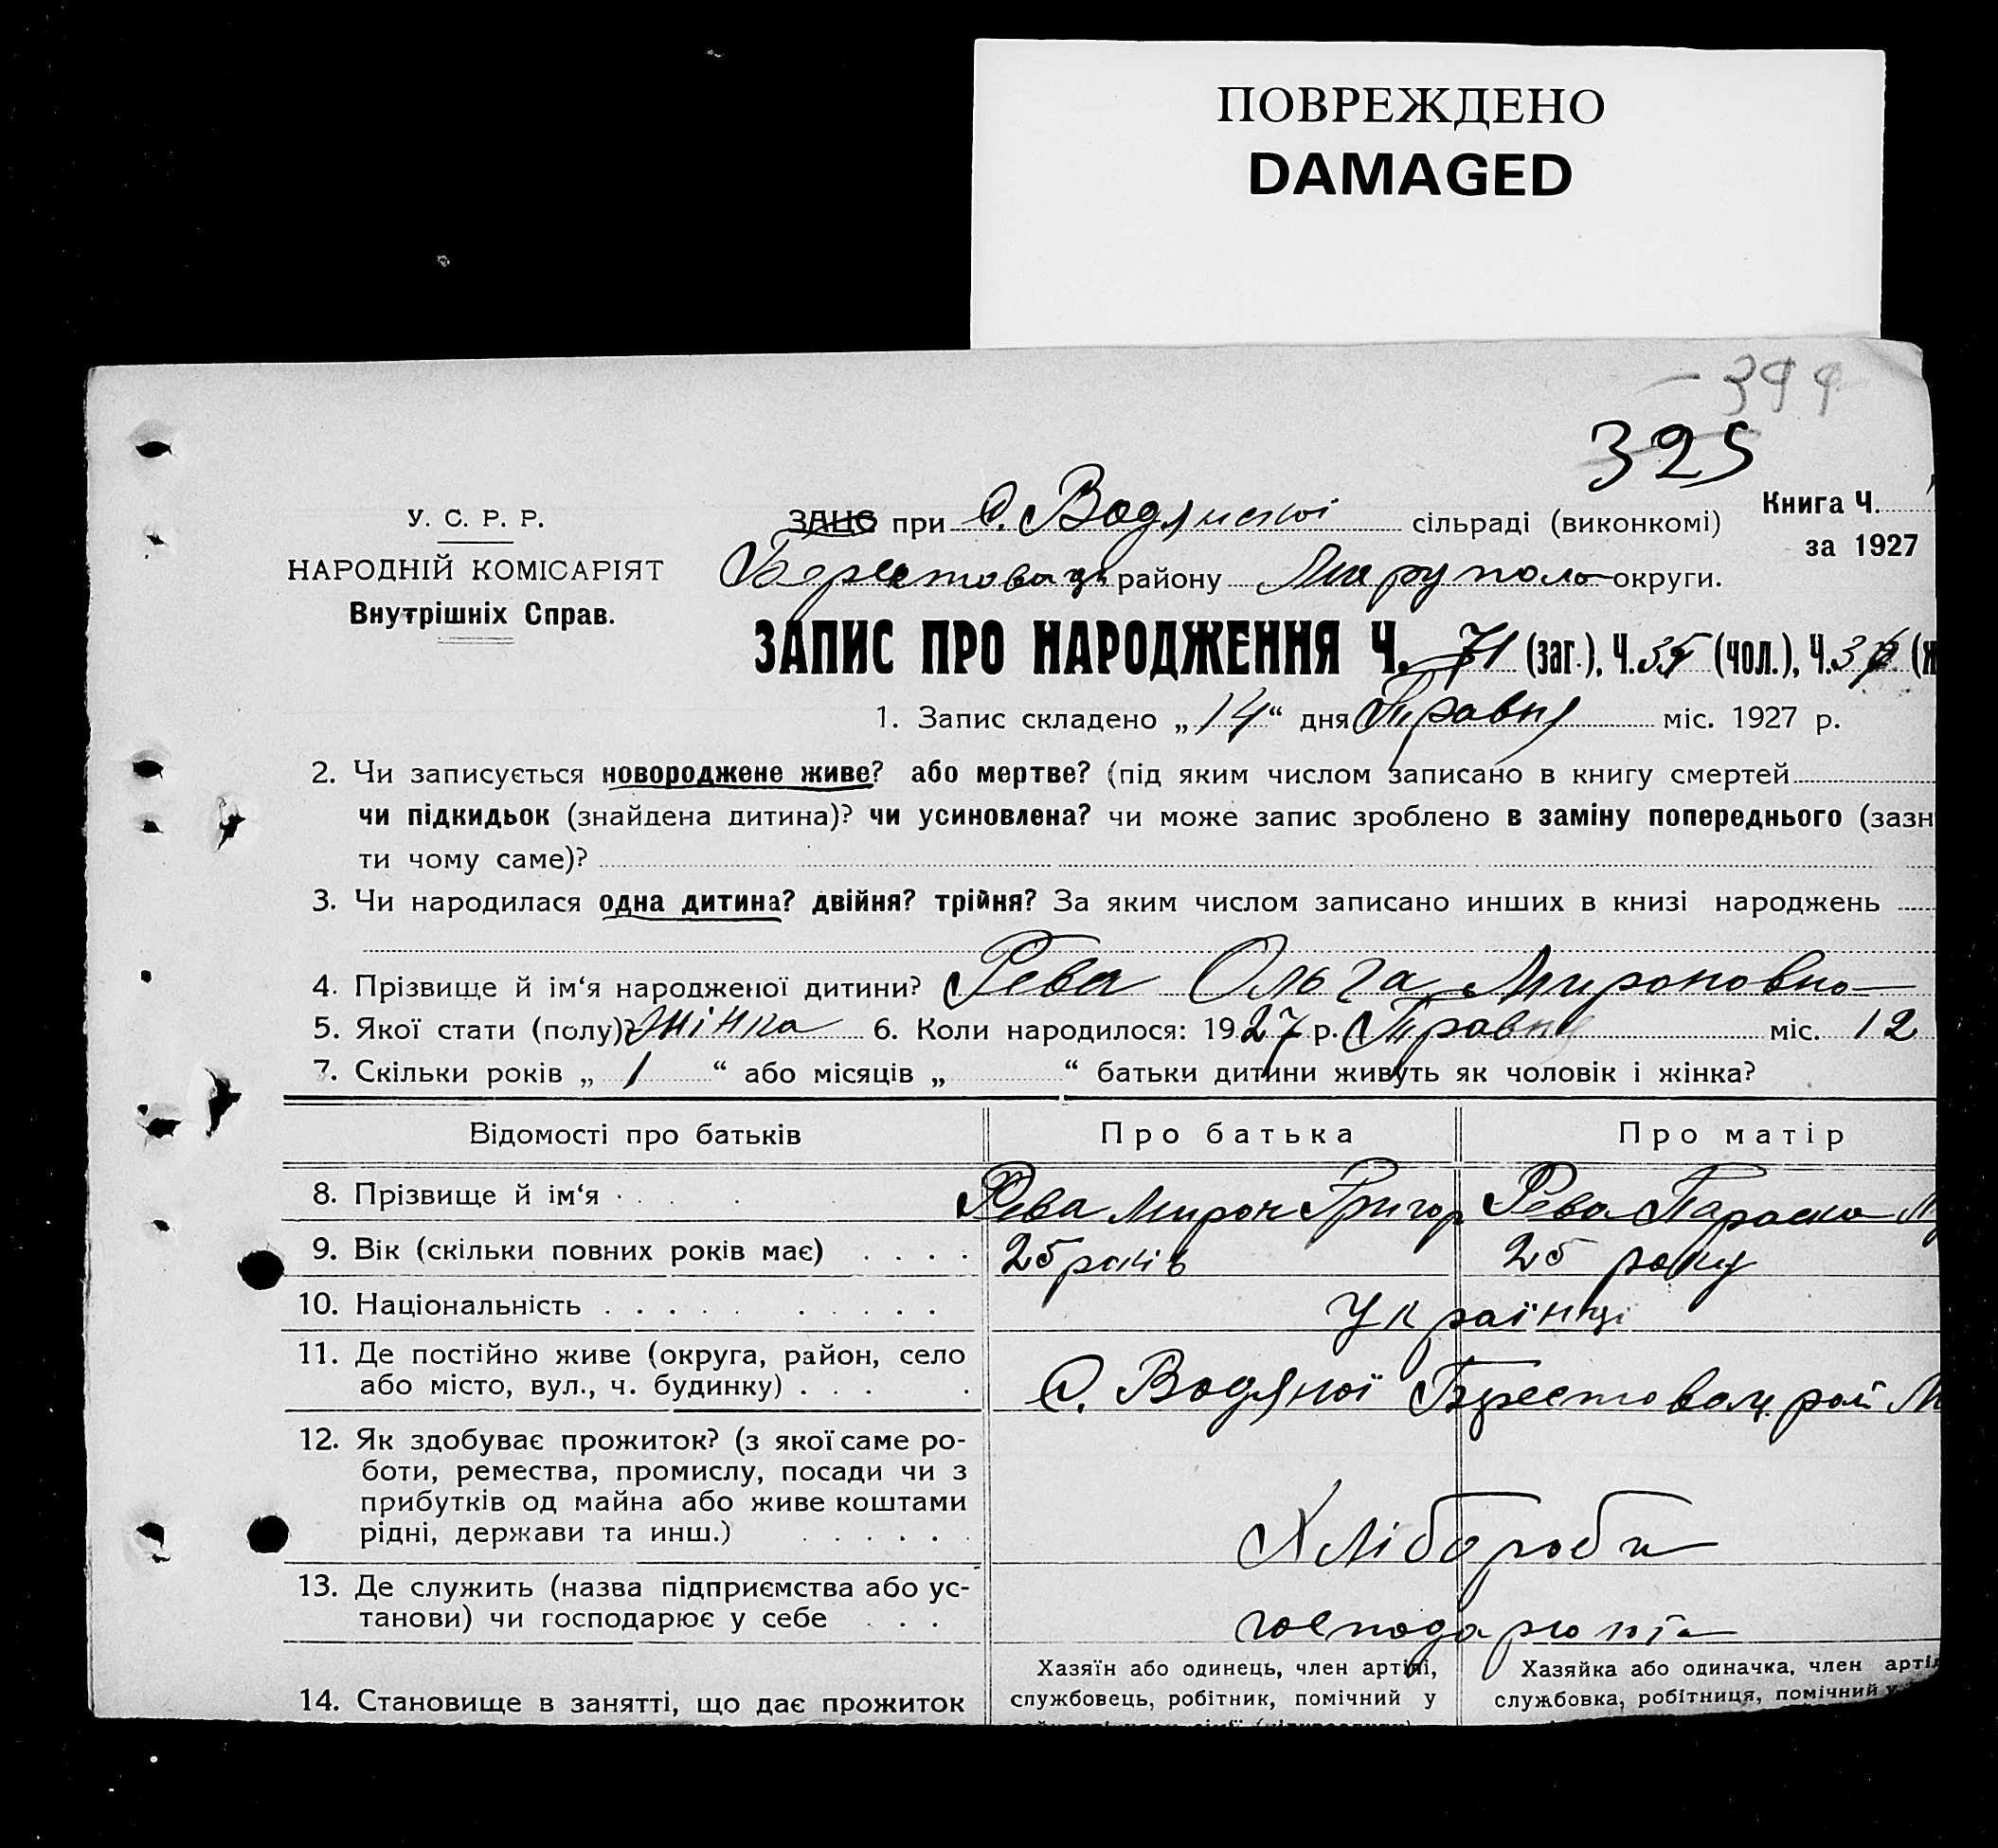 ПОВРЕЖДЕНО
DAMAGED
- 399
325
У. С. Р. Р.
НАРОДНІЙ КОМІСАРІЯТ
Внутрішніх Справ.
ЗАЦС при с. Водянської сільраді (виконкомі)
Книга Ч.
за 1927
району Маруполь округи.
ЗАПИС ПРО НАРОДЖЕННЯ Ч. 71 (заг.), Ч. 35 (чол.), Ч. 36 (ж
1. Запис складено „14“ дня Травня міс. 1927 р.
2. Чи записується новороджене живе? або мертве? (під яким числом записано в книгу смертей
чи підкидьок (знайдена дитина)? чи усиновлена? чи може запис зроблено в заміну попереднього (зазн
ти чому саме)?
3. Чи народилася одна дитина? двійня? трійня? За яким числом записано инших в книзі народжень
4. Прізвище й ім‘я народженої дитини? Рева Ольга Мироновна
5. Якої стати (полу)? Жінка 6. Коли народилося: 1927 р. Травня міс. 12
7. Скільки років „ 1 “ або місяців „ “ батьки дитини живуть як чоловік і жінка?
Відомості про батьків Про батька Про матір
8. Прізвище й ім‘я . . . Рева Мирон Григор Рева Параска М
9. Вік (скільки повних років має) . . . . 25 років 25 року
10. Національність . . . . . . . . . . Українці
11. Де постійно живе (округа, район, село
або місто, вул., ч. будинку) . . . . С. Водяної Берестовец. рай М
12. Як здобуває прожиток? (з якої саме ро-
боти, ремества, промислу, посади чи з
прибутків од майна або живе коштами
рідні, держави та инш.) . . . . . . Хлібороби
13. Де служить (назва підприємства або ус-
танови) чи господарює у себе . . .
14. Становище в занятті, що дає прожиток
Хазяїн або одинець, член артілі,
службовець, робітник, помічний у
Хазяйка або одиначка, член артіл
службовка, робітниця, помічний у